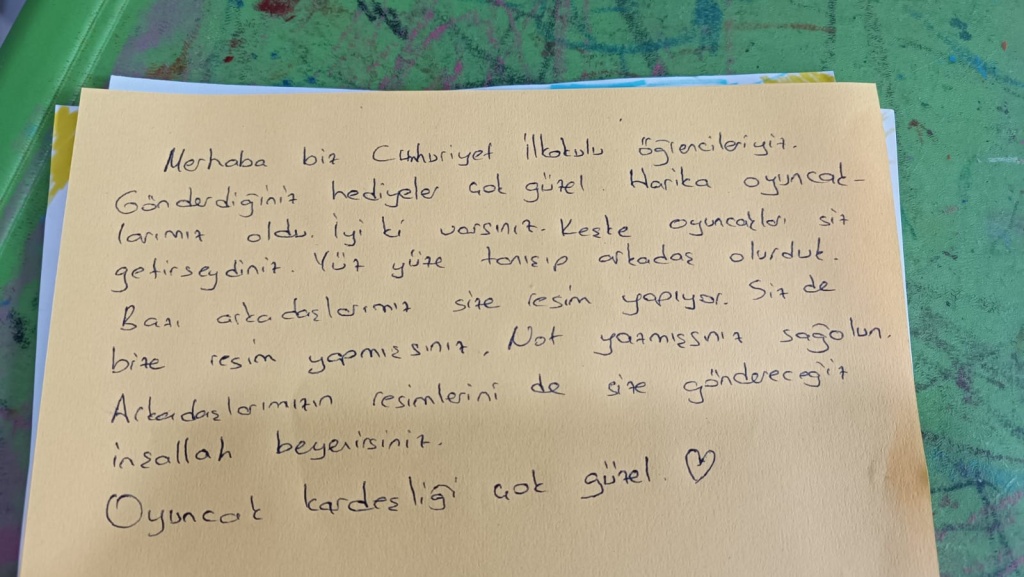 Merhaba biz Cumhuriyet İlkokulu öğrencileriyiz.
Gönderdiğiniz hediyeler çok güzel. Harika oyuncak-
larımız oldu. İyi ki varsınız. Keşke oyuncakları siz
getirseydiniz. Yüz yüze tanışıp arkadaş olurduk.
Bazı arkadaşlarımız size resim yapıyor. Siz de
bize resim yapmışsınız. Not yazmışsnız sağolun.
Arkadaşlarımızın resimlerini de size göndereceğiz
inşallah beyenirsiniz.
Oyuncak kardeşliği çok güzel. ♡